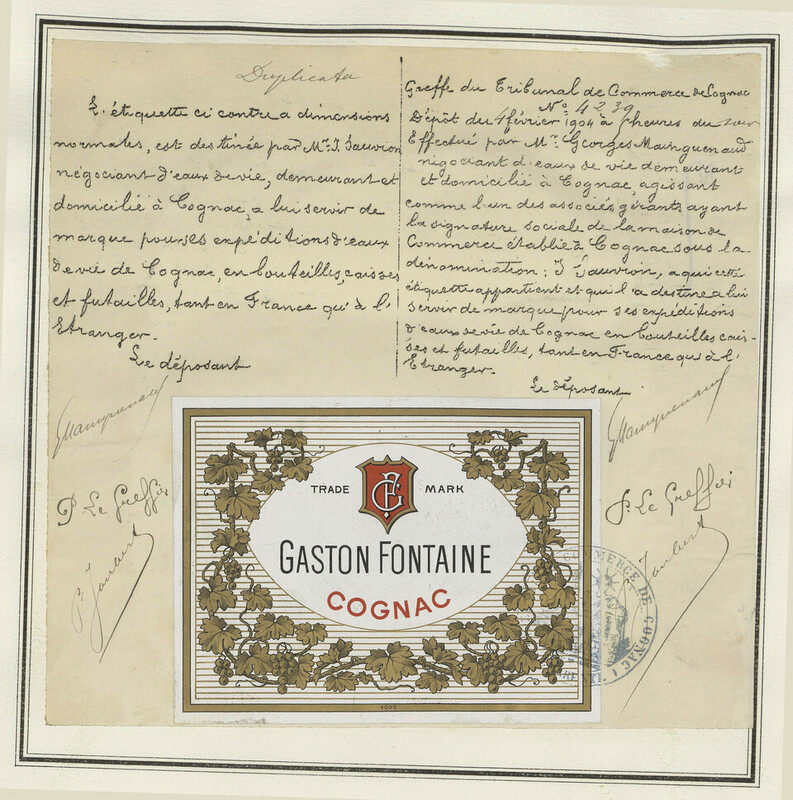 Duplicata
L'étiquette ci contre a dimensions
normales, est destinée par Mr. J. Jauvion
négociant d'eaux de vie, demeurant et
domicilié à Cognac, a lui servir de
marque pour ses expéditions d'eaux
de vie de Cognac, en bouteilles, caisses
et futailles, tant en France qu'à l'
Etranger.
Le déposant
GMainguenaud
P. Le Greffier
P. Jaubert
Greffe du Tribunal de Commerce de Cognac
No. 4239
Dépôt du 4 février 1904 à heures du soir
Effectué par Mr. Georges Mainguenaud
négociant d'eaux de vie demeurant
et domicilié à Cognac, agissant
comme l'un des associés gérants ayant
la signature sociale de la maison de
Commerce établie à Cognac sous la
dénomination : J Jauvion, a qui cette
étiquette appartient et qui l'a destine a lui
servir de marque pour ses expéditions
d'eaux de vie de Cognac en bouteilles cais-
ses et futailles, tant en France qu'à l'
Etranger.
Le déposant
GMainguenaud
P. Le Greffier
Jaubert
TRADE MARK
GF
GASTON FONTAINE
COGNAC
COMMERCE DE COGNAC